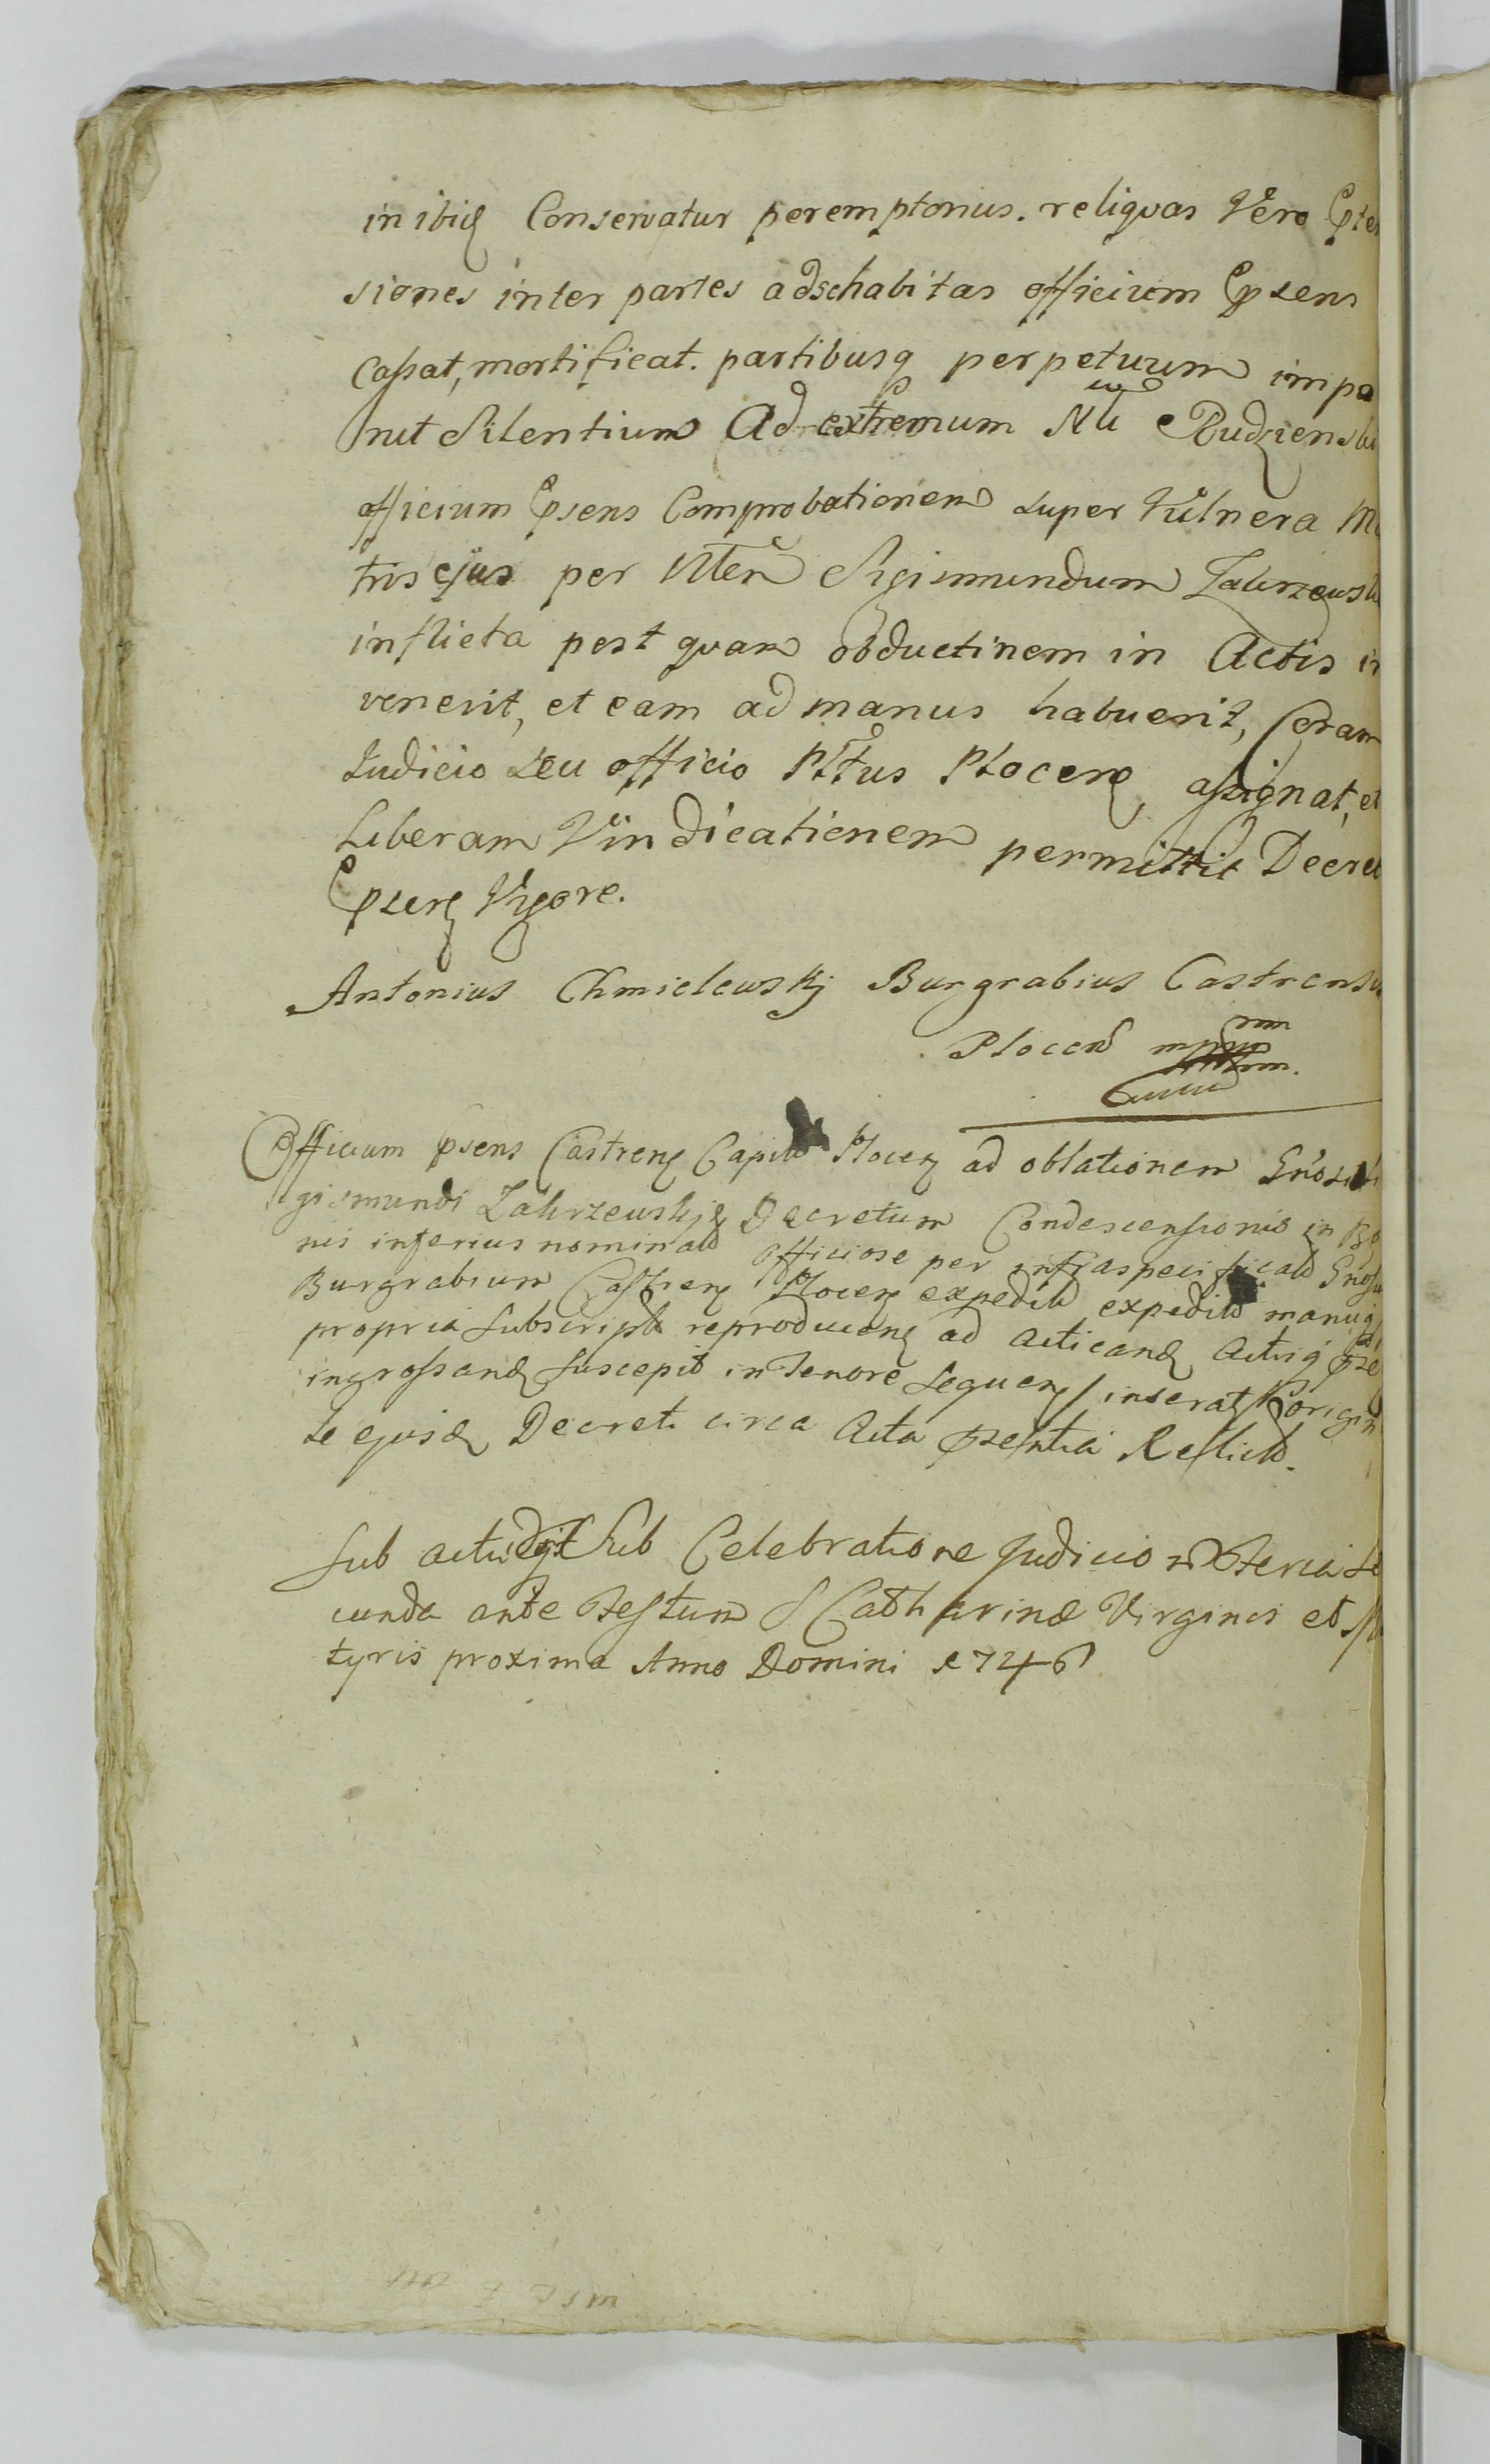 inibiq Conservatur peremptorius. reliquas Vero Pten
siones inter partes adschabitas officium Psens
Cassat, mortificat. partibusq perpetuum impo
nit Silentium Ad extremum Nli Rudziensbi
officium Psens Comprobationem super Vulnera Ma
tris ejus per Nlem Sigismundum Zakrzewski
inflicta post quam obductinem in Actis in
venerit, et eam ad manus habuerit, Coram
Judicio Seu officio Pttus Plocen, assignat, et
Liberam Vindicationem permittit Decret
Psen Vigore.
Antonius Chmielewskj Burgrabius Castrensis
Plocen mppria
Officium Psens Castren Capit Plocen ad oblationem Gnosi Si
gismundi Zakrzewskj Decretum Condescensionis in Bo
nis inferius nominat officiose per infraspecificat Gnosu
Burgrabium Castren Plocen expedit expedit manuq
propria Subscript reproducen ad acticand Actisq Pse
ingrossand suscepit in tenore Sequen / inserat / origin
le ejusd Decreti circa Acta Psentia Relicto.
Sub actu Sub Celebratione Judicior Feria Se
cunda ante Festum S Catharinæ Virginis et Ma
tyris proxima Anno Domini 1746